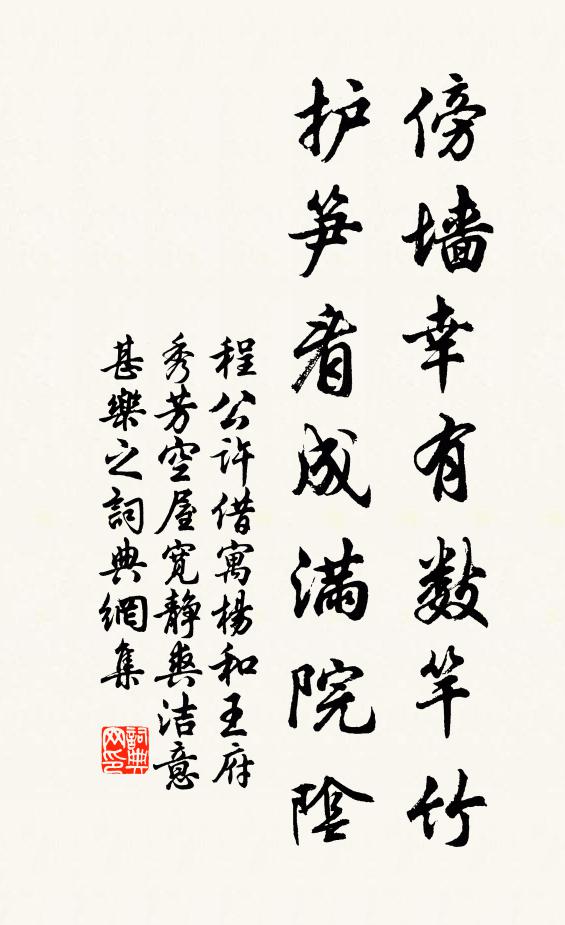 傍墙幸有数竿竹
护笋看成满院阴
程公许借寓杨和王府
秀芳空屋宽静爽洁意
甚樂之詞典網集
詞典
网印